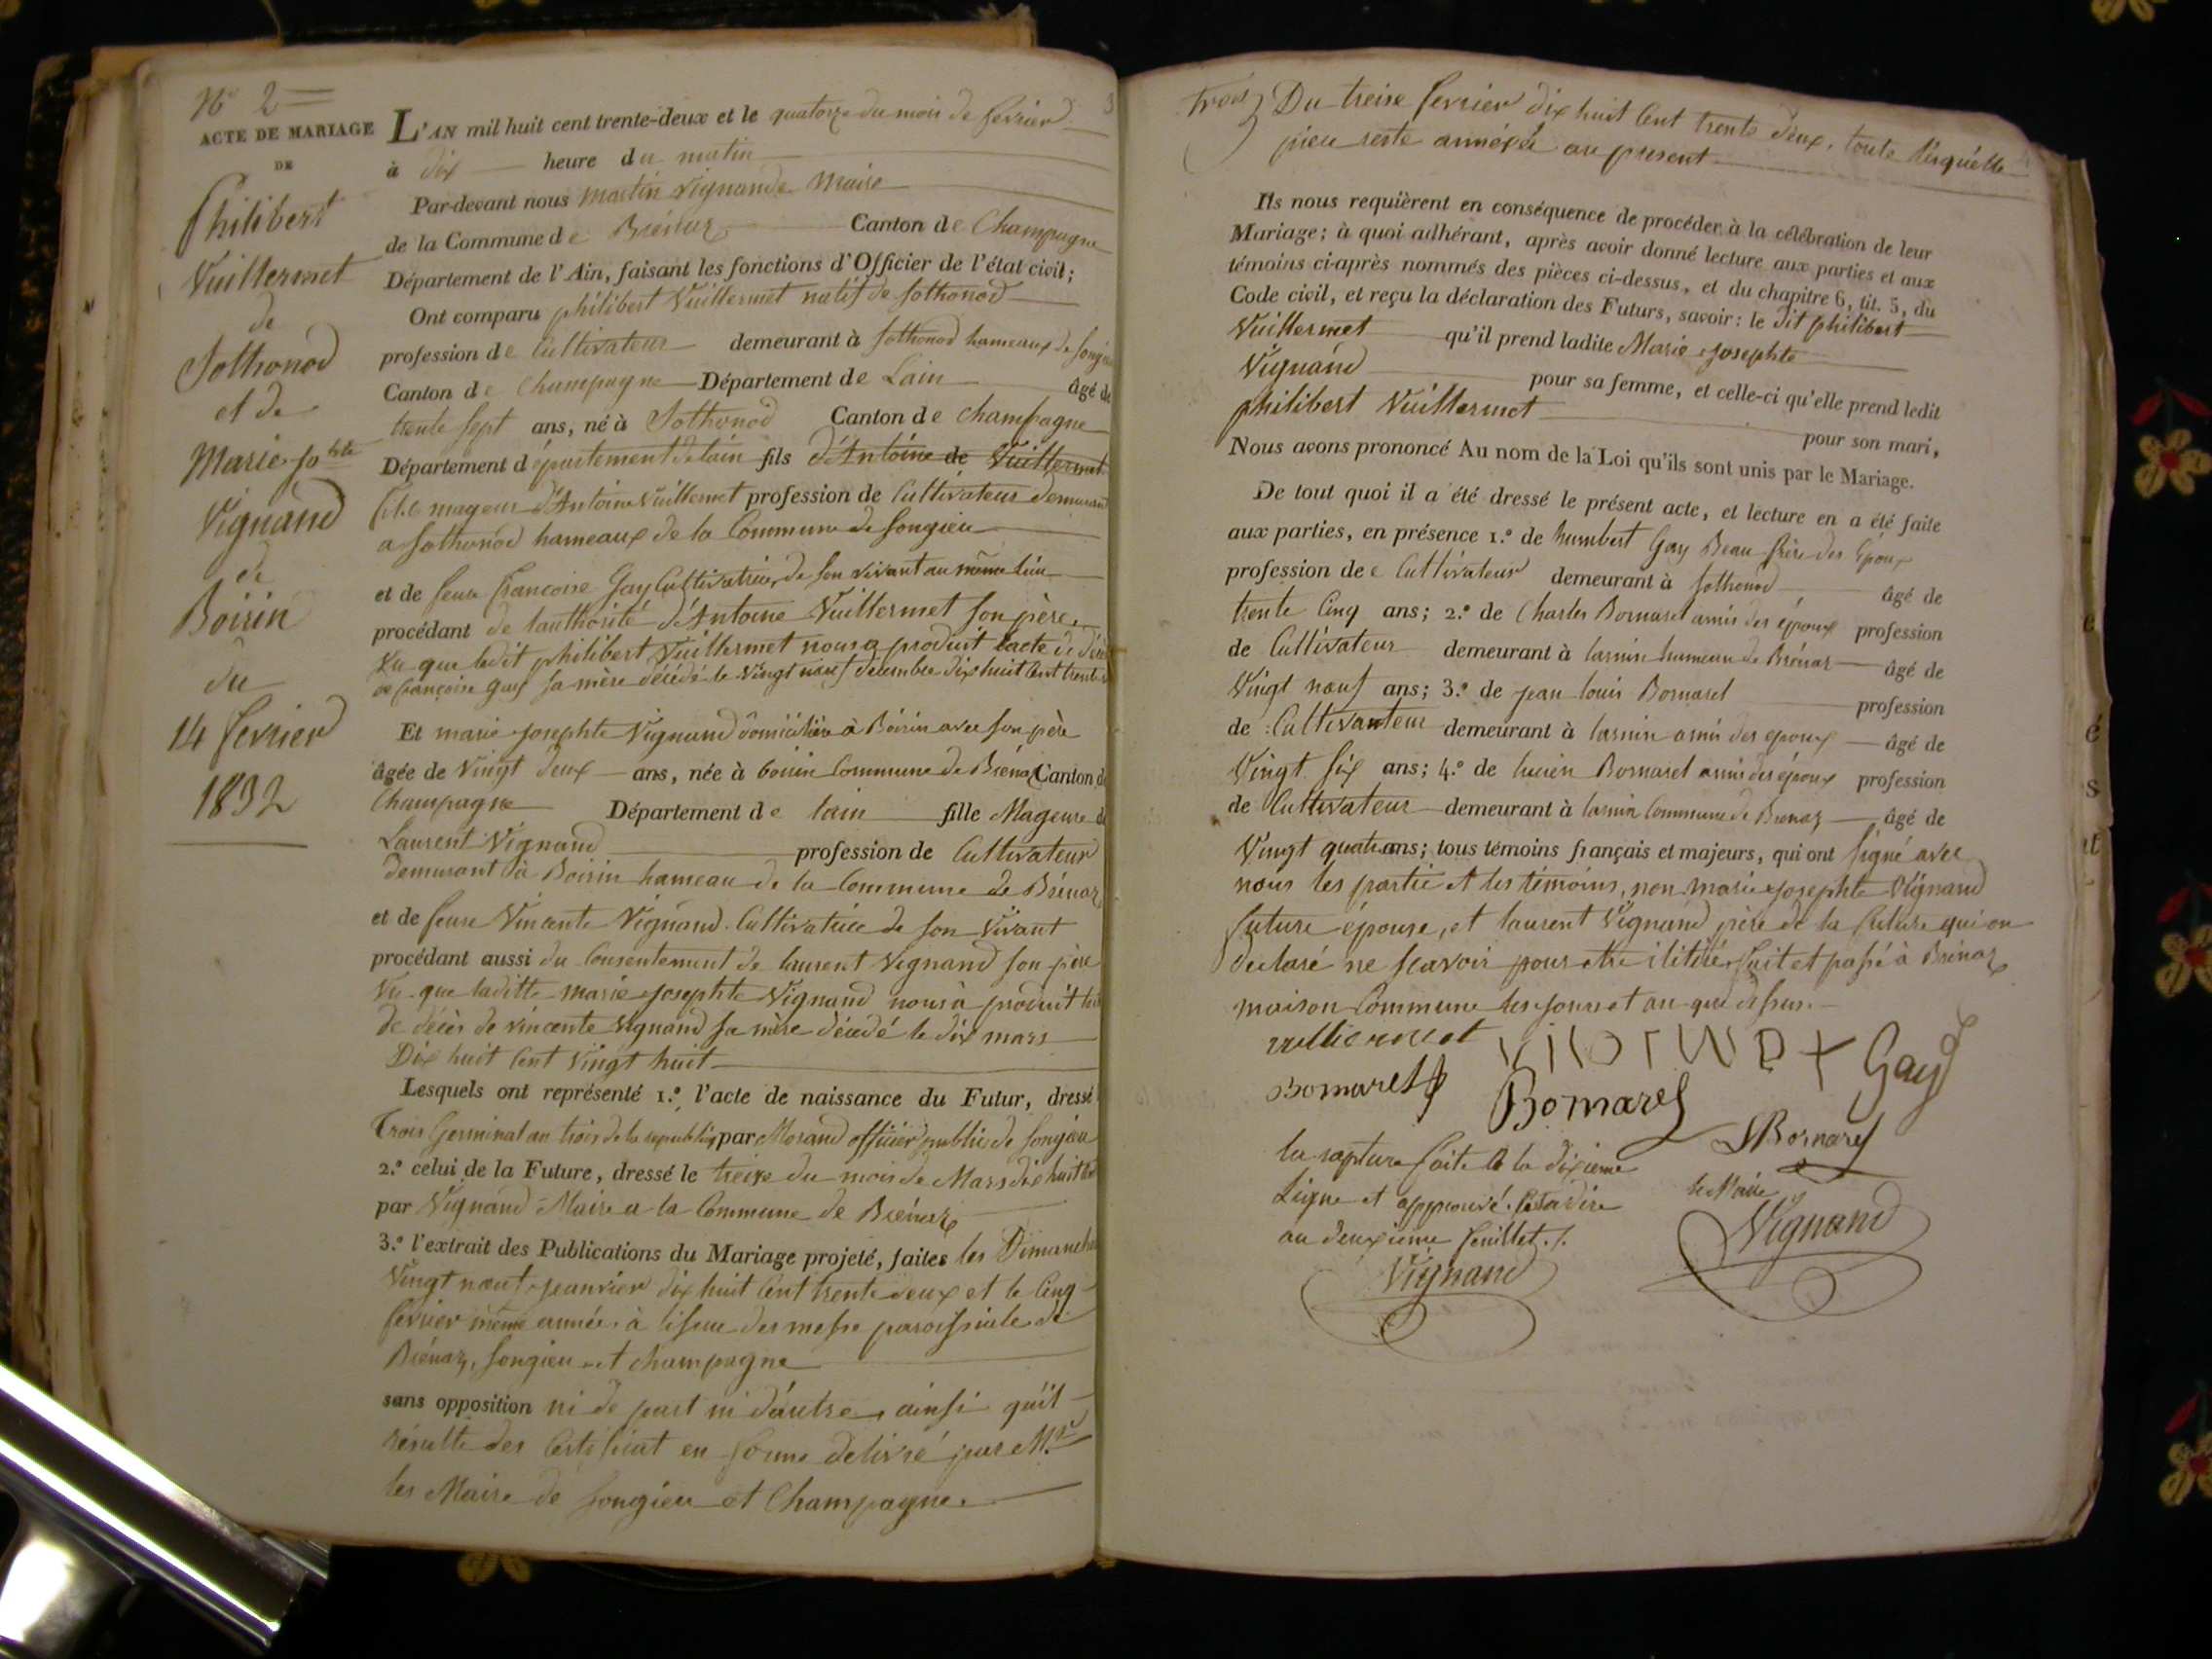 N° 2
ACTE DE MARIAGE
DE
Philibert
Vuillermet
de
Sothonod
et de
Marie Jo.hte
Vignand
de
Boirin
du
14 fevrier
1832
3
L'AN mil huit cent trente-deux et le quatorze du mois de fevrier
à dix heure du matin
Par-devant nous Martin Vignand Maire
de la Commune de Brénaz Canton de Champagne
Département de l'Ain, faisant les fonctions d'Officier de l'état civil;
Ont comparu philibert Vuillermet natif de Sothonod
profession de Cultivateur demeurant à Sothonod hameaux de Songieu
Canton de Champagne Département de Lain âgé de
trente sept ans, né à Sothonod Canton de Champagne
Département département de lain fils d'Antoine de Vuillermet
fils mageur d'Antoine Vuillermet profession de Cultivateur demeurant
a Sothonod hameaux de la Commune de Songieu
et de feue francoise Gay Cultivatrice, de son vivant au même lieu
procédant de lauthorité d'Antoine Vuillermet son père.
Vu que ledit philibert Vuillermet nous a produit lacte de décè
de francoise Gay sa mère décédé le vingt neuf décembre dix huit Cent trente
Et marie Josephte Vignand domicilière à Boirin avec son père
âgée de Vingt deux ans, née à boirin Commune de Brénaz Canton de
Champagne Département de lain fille Mageure de
Laurent Vignand profession de Cultivateur
demeurant à Boirin hameau de la Commune de Brénaz
et de feue Vincente Vignand Cultivatrice de son Vivant
procédant aussi du Consentement de laurent Vignand son père
Vu que laditte marie Josephte Vignand nous à produit
de décès de vincente Vignand sa mère décédé le dix mars
Dix huit Cent Vingt huit
Lesquels ont représenté 1.° l'acte de naissance du Futur, dressé
Trois Germinal an trois de la republiq par Morand officier public de Songieu
2.° celui de la Future, dressé le treize du mois de Mars dix huit
par Vignand Maire a la Commune de Brénaz
3.° l'extrait des Publications du Mariage projeté, faites les Dimanche
Vingt neuf Jeanvier dix huit Cent trente deux et le Cinq
fevrier même année. à lissue des messe paroissiale de
Brénaz, Songieu et Champagne
sans opposition ni de part ni d'autre, ainsi qu'il
résulte des Certificat en forme délivré par M.rs
les Maire de Songieu et Champagne.
trois) Du treise fevrier dix huit Cent trente deux, toute lesquelle
piece reste annéxée au present
Ils nous requièrent en conséquence de procéder à la célébration de leur
Mariage; à quoi adhérant, après avoir donné lecture aux parties et aux
témoins ci-après nommés des pièces ci-dessus, et du chapitre 6, tit. 5, du
Code civil, et reçu la déclaration des Futurs, savoir: le dit philibert
Vuillermet qu'il prend ladite Marie Josephte
Vignand pour sa femme, et celle-ci qu'elle prend ledit
philibert Vuillermet pour son mari,
Nous avons prononcé Au nom de la Loi qu'ils sont unis par le Mariage.
De tout quoi il a été dressé le présent acte, et lecture en a été faite
aux parties, en présence 1.° de humbert Gay Beau frère des Epoux
profession de e Cultivateur demeurant à Sothonod âgé de
trente Cinq ans; 2.° de Charles Bornarel amis des époux profession
de Cultivateur demeurant à larnin hameau de Brénaz âgé de
Vingt neuf ans; 3.° de jean louis Bornarel profession
de Cultivanteur demeurant à larnin amis des epoux âgé de
Vingt Six ans; 4.° de lucien Bornarel amis des époux profession
de Cultivateur demeurant à larnin Commune de Brenaz âgé de
Vingt quatre ans; tous témoins français et majeurs, qui ont signé avec
nous les partie et les témoins, non marie Josephte Vignand
future épouse, et laurent Vignand père de la future qui on
declaré ne scavoir pour etre ilitéré. fait et passé à Brénaz
maison Commune les jours et an que dessus.
vulliermet VIGNIND + Gay
Bornarel Bornarel
JBornarel
la rapture faite à la dixieme
Ligne et approuvé. Cestadire
au deuxieme feuillet./.
Vignand
le Maire
Vignand